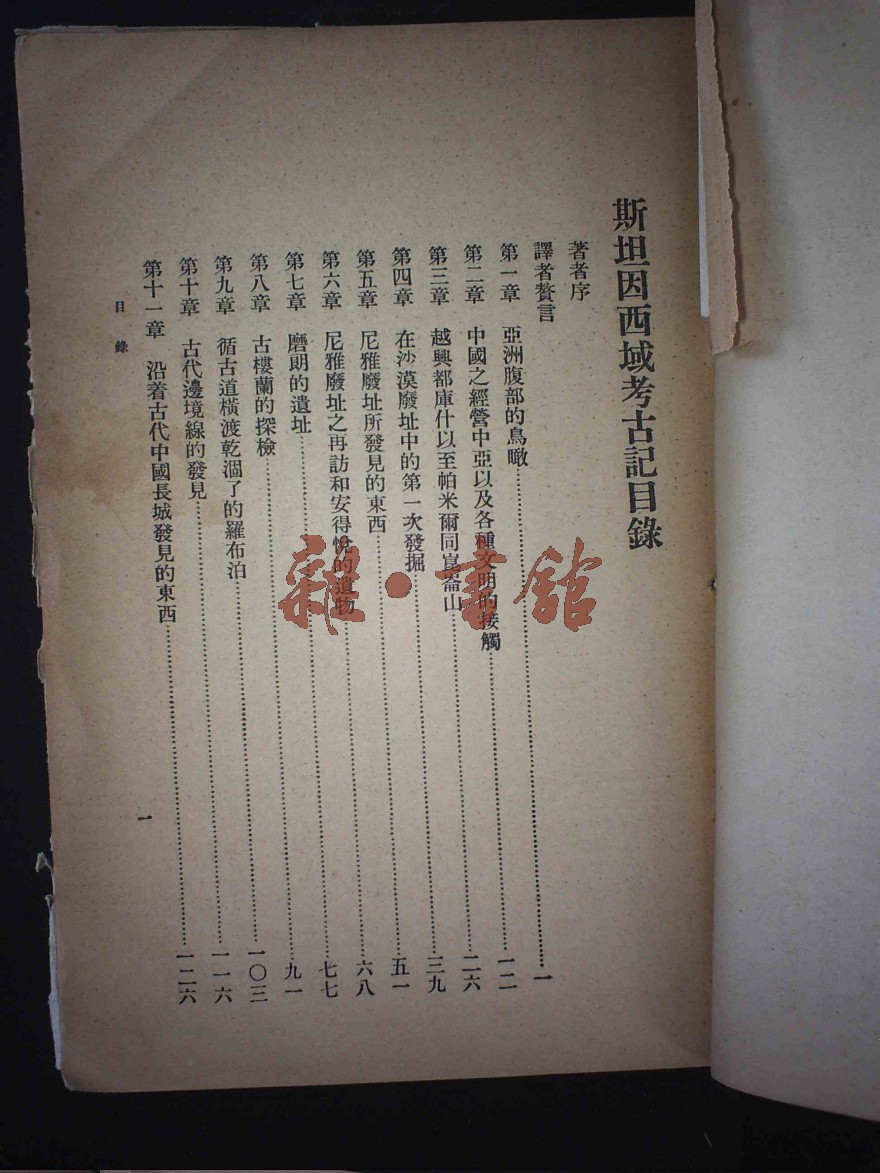 斯坦因西域考古記目錄
著者序
譯者贅言
第一章 亞洲腹部的鳥瞰……一
第二章 中國之經營中亞以及各種文明的接觸……一二
第三章 越興都庫什以至帕米爾同崑崙山……二六
第四章 在沙漠廢址中的第一次發掘……三九
第五章 尼雅廢址所發見的東西……五一
第六章 尼雅廢址之再訪和安得悅的遺物……六八
第七章 磨朗的遺址……七七
第八章 古樓蘭的探檢……九一
第九章 循古道橫渡乾涸了的羅布泊……一〇三
第十章 古代邊境線的發見……一一六
第十一章 沿着古代中國長城發見的東西……一二六
目錄
一
雜·書館